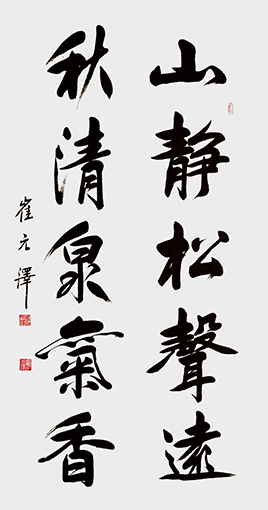 山靜松聲遠
秋清泉氣香
崔元澤